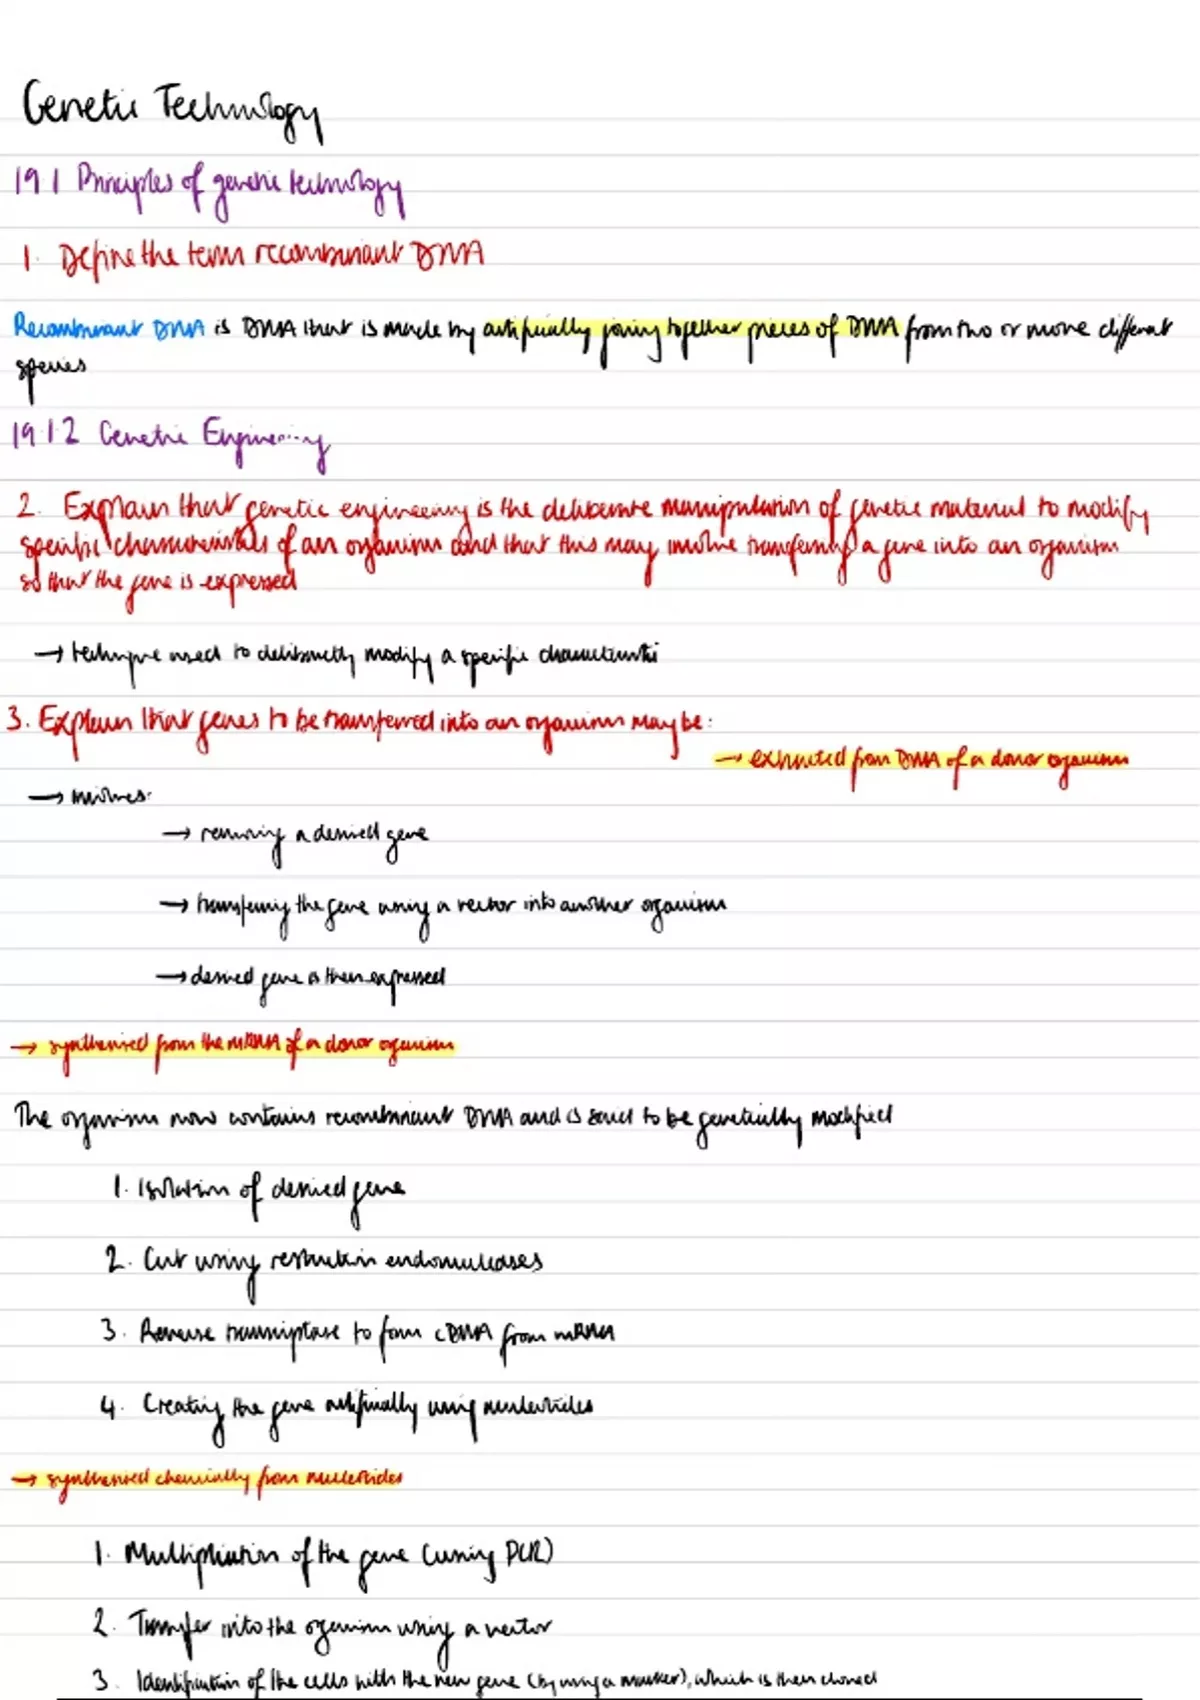 Genetic Technology
19.1 Principles of genetic technology
1. Define the term recombinant DNA
Recombinant DNA is DNA that is made by artificially joining together pieces of DNA from two or more different
species
19.1.2 Genetic Engineering
2. Explain that genetic engineering is the deliberate manipulation of genetic material to modify
specific characteristics of an organism and that this may involve transferring a gene into an organism
so that the gene is expressed
→ technique used to deliberately modify a specific characteristic
3. Explain that genes to be transferred into an organism may be:
→ extracted from DNA of a donor organism
→ involves:
→ removing a desired gene
→ transferring the gene using a vector into another organism
→ desired gene is then expressed
→ synthesised from the mRNA of a donor organism
The organism now contains recombinant DNA and is said to be genetically modified
1. Isolation of desired gene
2. Cut using restriction endonucleases
3. Reverse transcriptase to form cDNA from mRNA
4. Creating the gene artificially using nucleotides
→ synthesised chemically from nucleotides
1. Multiplication of the gene (using PCR)
2. Transfer into the organism using a vector
3. Identification of the cells with the new gene (by using a marker), which is then cloned